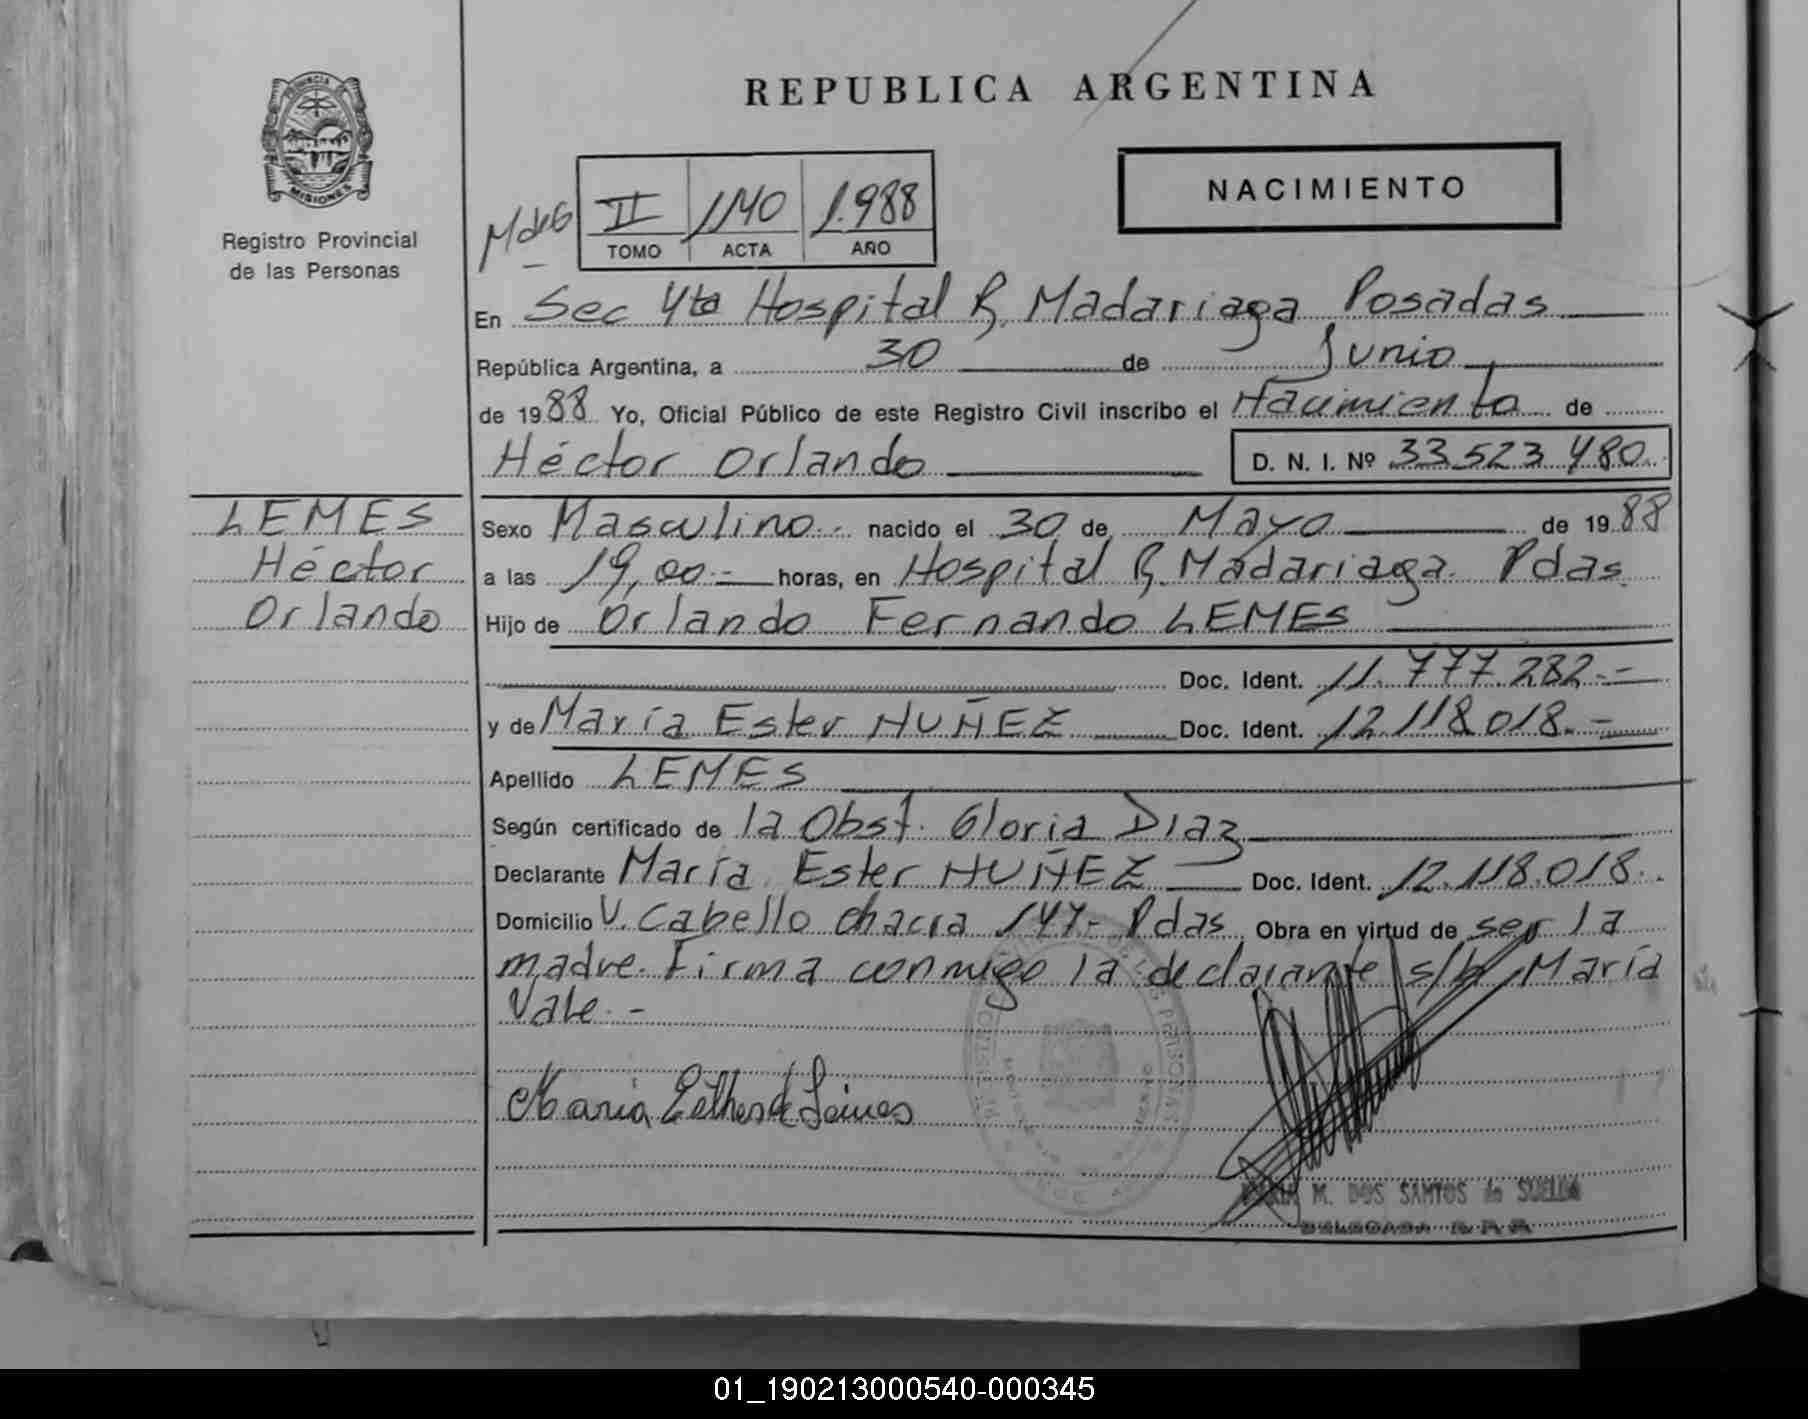 REPUBLICA ARGENTINA
PROVINCIA DE MISIONES
Registro Provincial
de las Personas
NACIMIENTO
II 1140 1.988
TOMO ACTA AÑO
En Sec 4ta Hospital R. Madariaga Posadas
República Argentina, a 30 de Junio
de 1988 Yo, Oficial Público de este Registro Civil inscribo el Nacimiento de
Héctor Orlando D. N. I. Nº 33.523.480
LEMES
Héctor
Orlando
Sexo Masculino.- nacido el 30 de Mayo de 1988
a las 19,00.- horas, en Hospital R. Madariaga. Pdas.
Hijo de Orlando Fernando LEMES
Doc. Ident. 11.777.282.-
y de María Ester NUÑEZ Doc. Ident. 12.118.018.-
Apellido LEMES
Según certificado de la Obst. Gloria Diaz
Declarante María Ester NUÑEZ Doc. Ident. 12.118.018.
Domicilio V. Cabello chacra 147- Pdas Obra en virtud de ser la
madre. Firma conmigo la declarante s/b María
Vale.-
María Esther de Lemes
M. DOS SANTOS de SUELDO
DELEGADA R.P.P.
01_190213000540-000345